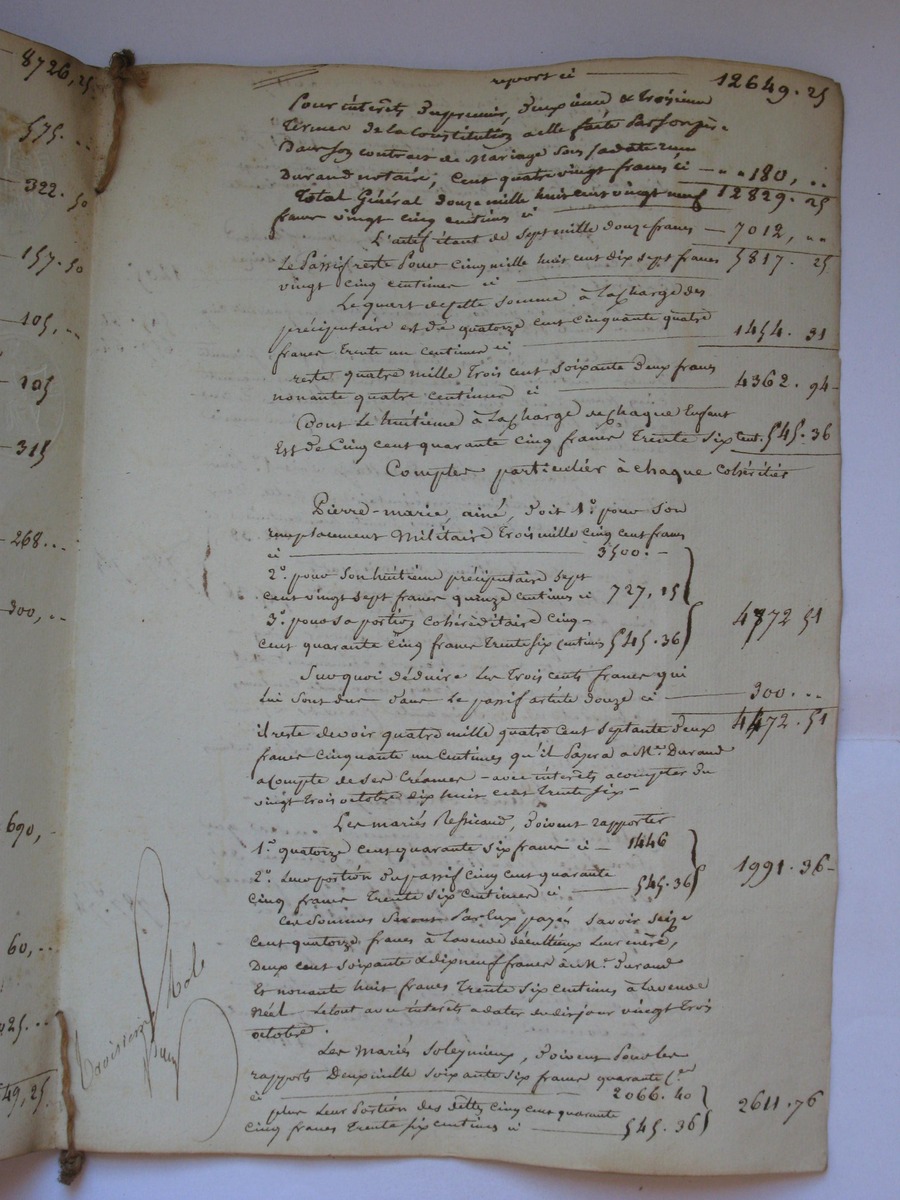 8726,25
575. ..
322. 50
157. 50
105, ..
105
315
268...
300, ..
690, -
60, ..
25. ..
49,25.
report ci 12649. 25
Pour intérêts du premier, deuxième & troisième
termes de la Constitution à elle faite par son père
Dans son contrat de Mariage sous sa date reçu
Durand notaire; Cent quatre vingt francs ci - " " 180, ..
Total Général douze mille huit cent vingt neuf 12829. 25
francs vingt cinq centimes ci
L'actif étant de Sept mille douze francs - 7012, ..
Le Passif reste Pour Cinq mille huit cent dix sept francs 5817. 25
vingt cinq centimes ci
Le quart de cette somme à la charge des
précipuitaire est de quatorze cent cinquante quatre
francs trente un centimes ci 1454. 31
reste quatre mille trois cent soixante deux francs
nonante quatre centimes ci 4362. 94
Dont le huitième à la charge de chaque Enfant
Est de Cinq cent quarante cinq francs trente six cent. 545. 36
Comptes particulier à chaque cohérités
Pierre-marie, ainé, doit 1° pour son
remplacement Militaire trois mille cinq cent francs
ci 3500. -
2° pour son huitième précipuitaire sept
cent vingt sept francs quinze centimes ci 727, 15
3° pour sa portion cohéréditaire cinq-
cent quarante cinq francs trente six centimes 545. 36 4772 51
Sur quoi déduire les trois cents francs qui
lui sont due dans le passif article douze ci 300. ..
4472. 51
il reste devoir quatre mille quatre cent septante deux
francs cinquante un centimes qu'il payra à Mr. Durand
acompte de ses Créances - avec intérêts acompter du
vingt trois octobre dix huit cent trente six -
Les mariés, doivent rapporter
1° quatorze cent quarante six francs ci - 1446
2° Leur portion du passif cinq cent quarante
cinq francs trente six centimes ci 545. 36 1991. 36
Ces sommes seront par Eux payés savoir seize
cent quatorze francs à la veuve leur mère,
Deux cent soixante & dix neuf francs à Mr. Durand
Et nonante huit francs trente six centimes à la veuve
néel - le tout avec intérêts a dater du dit jour vingt trois
octobre.
Les Mariés Soleymieux, doivent Pour les
rapports Deux mille soixante six francs quarante c.es
ci 2066. 40
plus Leur Portion des dettes cinq cent quarante
cinq francs trente six centimes ci 545. 36 2611. 76
troisieme Role